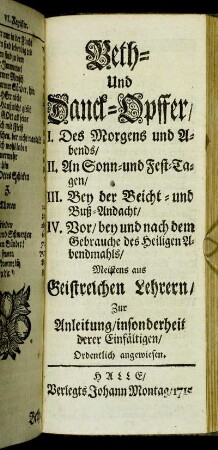 VI. Register.
Beth-
Und
Danck-Opffer/
I. Des Morgens und A-
bends/
II. An Sonn- und Fest-Ta-
gen/
III. Bey der Beicht- und
Buß-Andacht/
IV. Vor/ bey und nach dem
Gebrauche des Heiligen A-
bendmahls/
Meistens aus
Geistreichen Lehrern/
Zur
Anleitung/ insonderheit
derer Einfältigen/
Ordentlich angewiesen.
HALLE/
Verlegts Johann Montag/